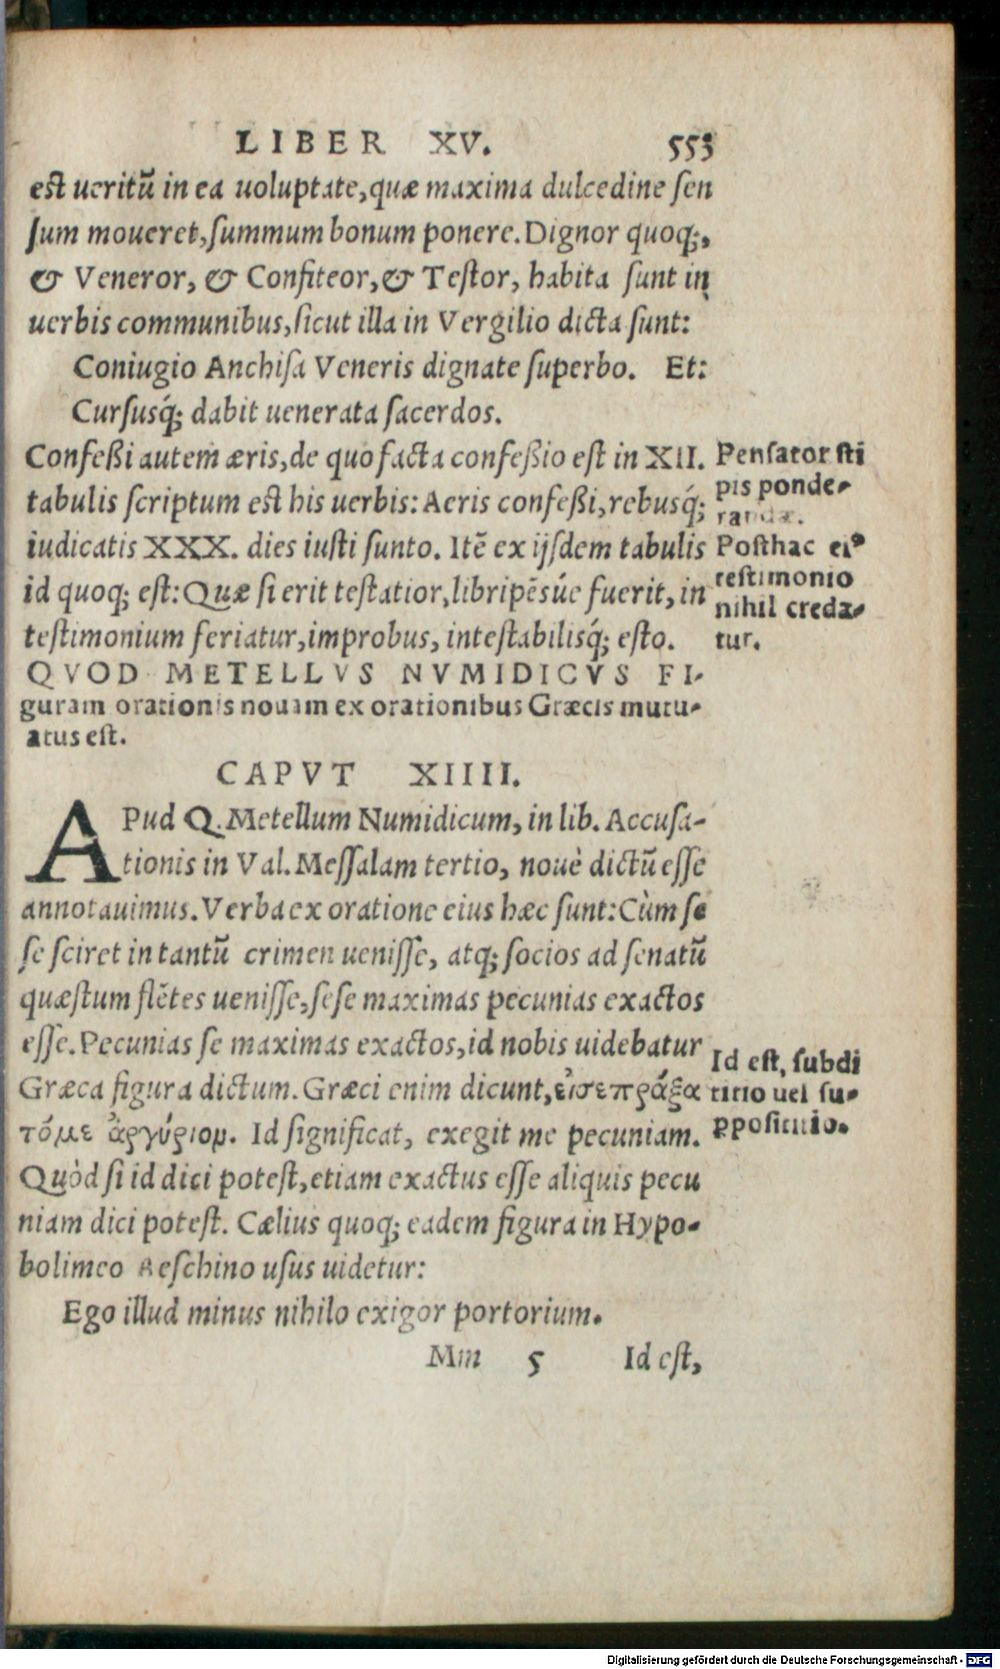 LIBER XV. 553
est ueritũ in ea uoluptate, quæ maxima dulcedine sen
sum moueret, summum bonum ponere. Dignor quoq;,
& Veneror, & Confiteor, & Testor, habita sunt in
uerbis communibus, sicut illa in Vergilio dicta sunt:
Coniugio Anchisa Veneris dignate superbo. Et:
Cursusq́; dabit uenerata sacerdos.
Confeßi autem æris, de quo facta confeßio est in XII.
tabulis scriptum est his uerbis: Aeris confeßi, rebusq́;
iudicatis XXX. dies iusti sunto. Itẽ ex ijsdem tabulis
id quoq; est: Quæ si erit testatior, libripẽsúe fuerit, in
testimonium feriatur, improbus, intestabilisq́; esto.
Pensator sti
pis ponde-
randæ.
Posthac ei
testimonio
nihil creda-
tur.
QVOD METELLVS NVMIDICVS FI-
guram orationis nouam ex orationibus Græcis mutu-
atus est.
CAPVT XIIII.
APud Q. Metellum Numidicum, in lib. Accusa-
tionis in Val. Messalam tertio, nouè dictũ esse
annotauimus. Verba ex oratione eius hæc sunt: Cùm se
se sciret in tantũ crimen uenisse, atq; socios ad senatũ
quæstum flẽtes uenisse, sese maximas pecunias exactos
esse. Pecunias se maximas exactos, id nobis uidebatur
Græca figura dictum. Græci enim dicunt, εἰσεπράξα
τόμε ἀργύριομ. Id significat, exegit me pecuniam.
Quòd si id dici potest, etiam exactus esse aliquis pecu
niam dici potest. Cælius quoq; eadem figura in Hypo-
bolimeo Aeschino usus uidetur:
Id est, subdi
titio uel su-
ppositicio.
Ego illud minus nihilo exigor portorium.
Mm 5 Id est,
Digitalisierung gefördert durch die Deutsche Forschungsgemeinschaft - DFG